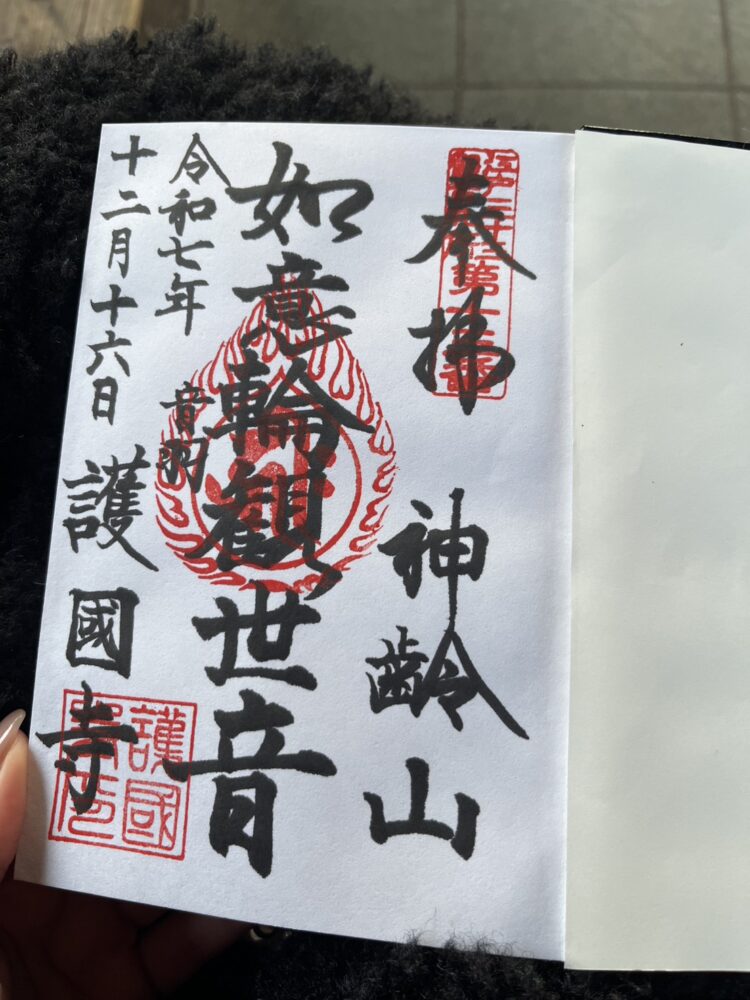 奉拝
神齢山
如意輪観世音
音羽
令和七年
十二月十六日
護國寺
護國